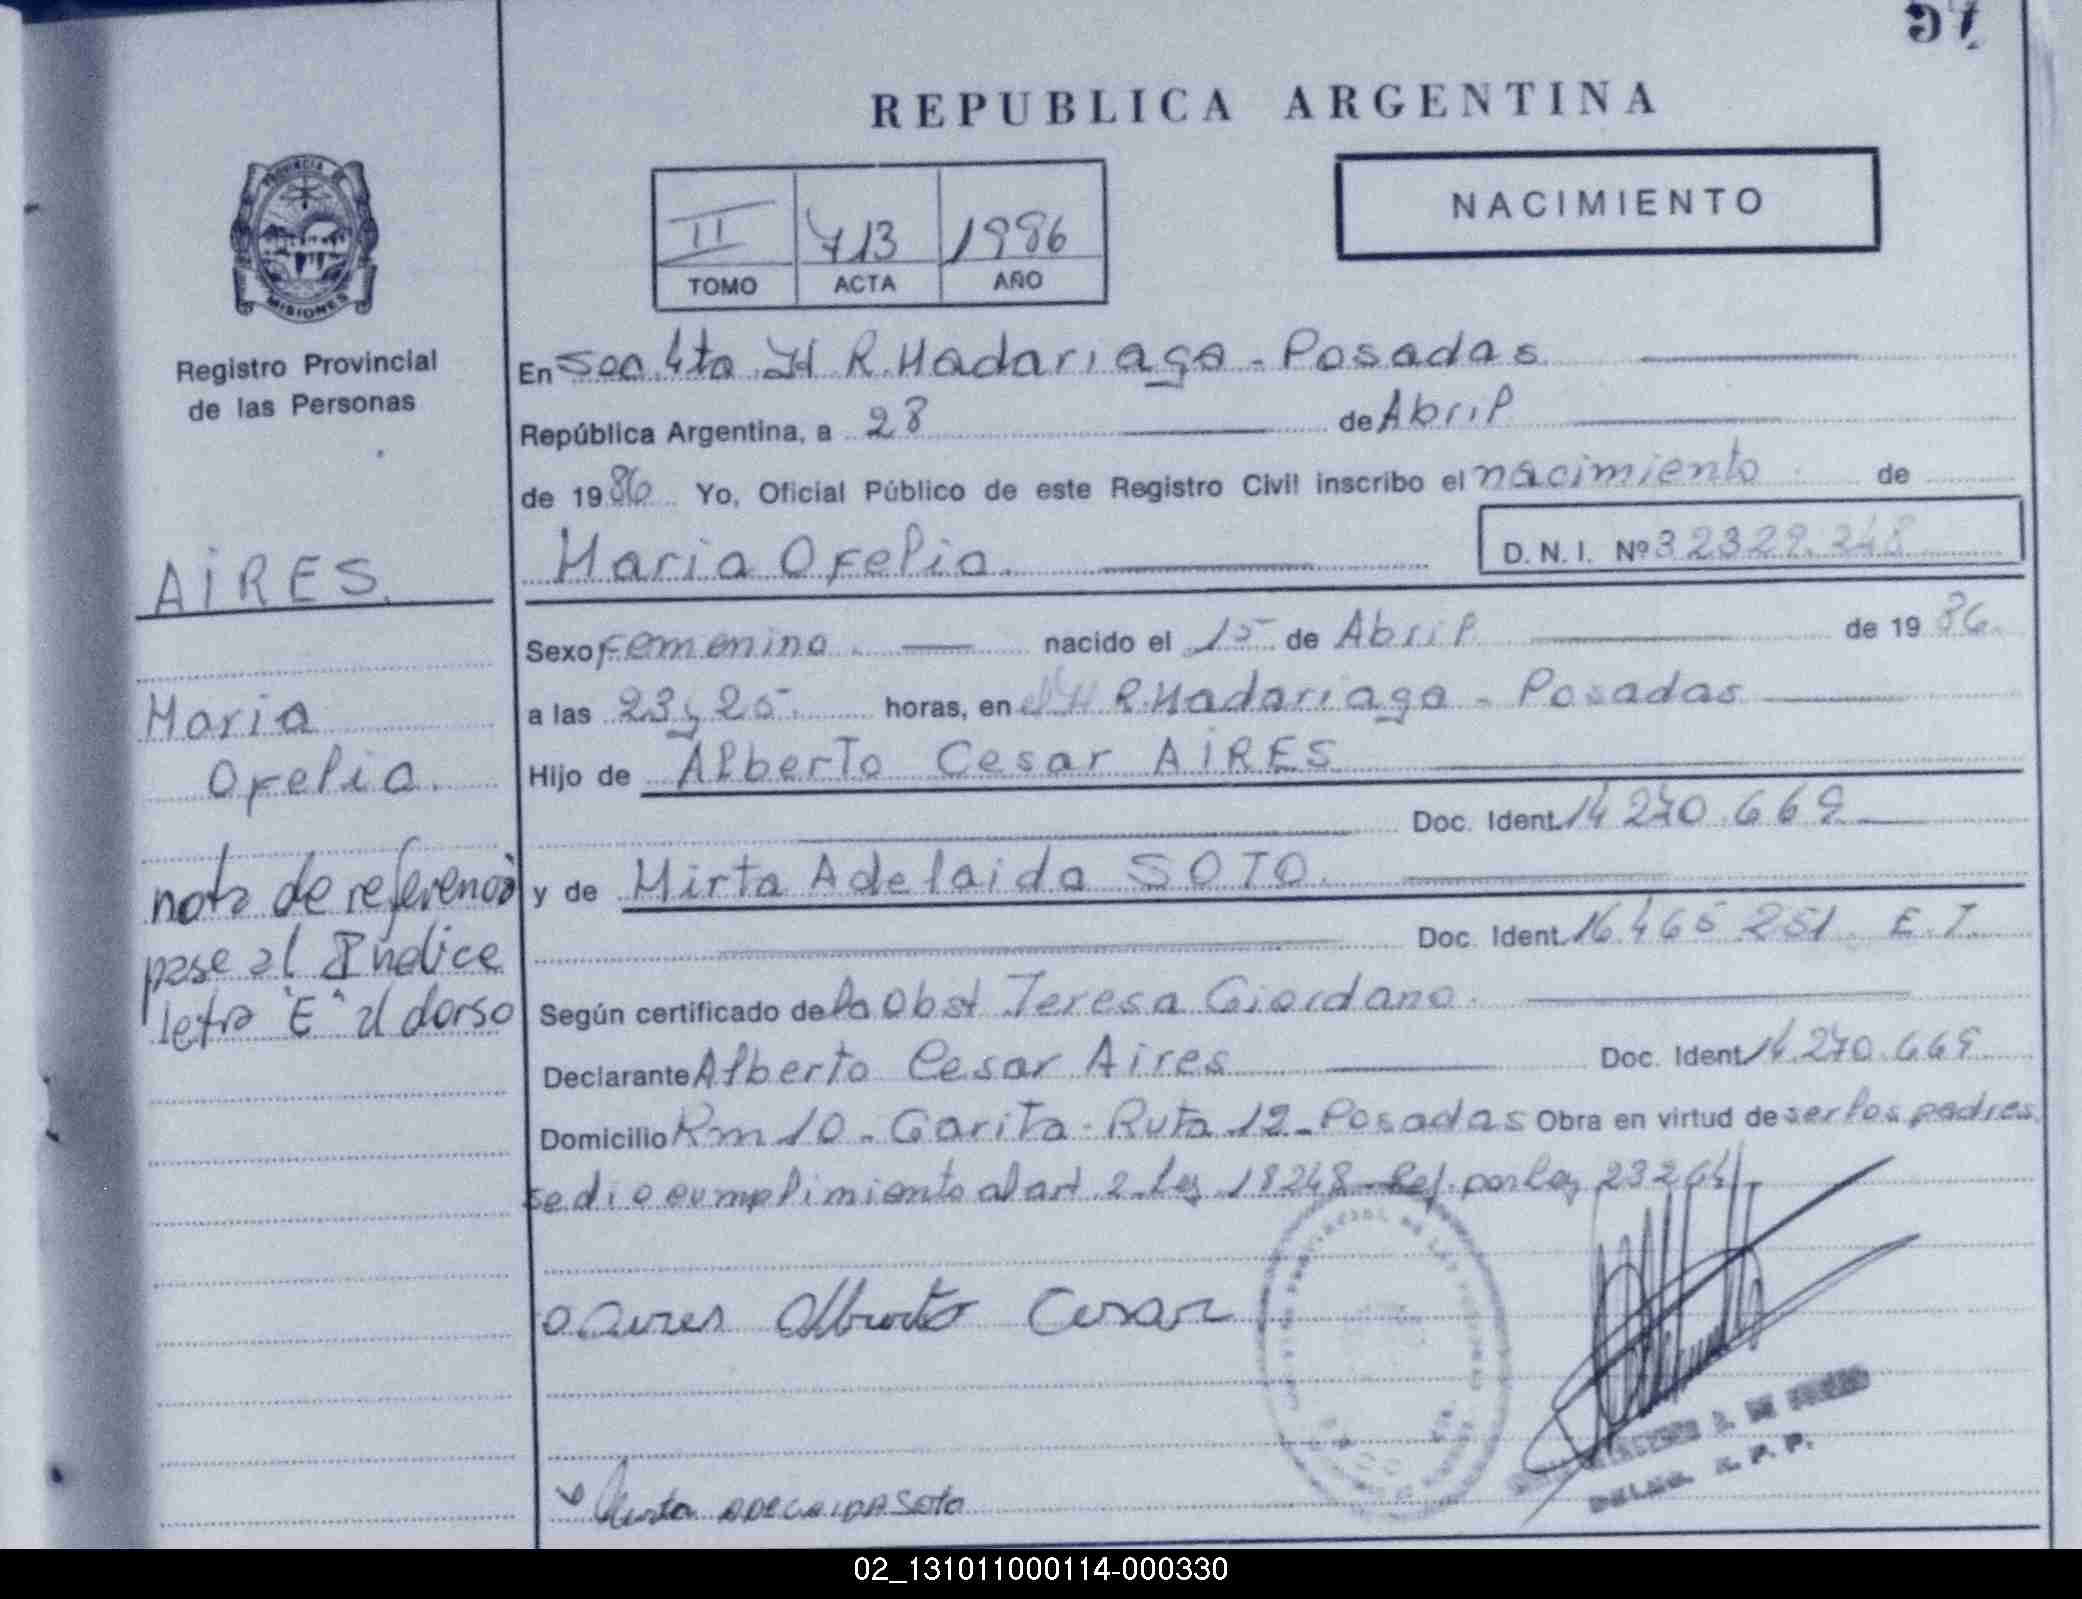 97
REPUBLICA ARGENTINA
NACIMIENTO
II 713 1986
TOMO ACTA AÑO
PROVINCIA DE
MISIONES
Registro Provincial
de las Personas
AIRES.
Maria
Ofelia.
nota de referencia
pase al Indice
letra "E" al dorso
En Secc 4ta H R. Madariaga - Posadas
República Argentina, a 28 de Abril
de 1986 Yo, Oficial Público de este Registro Civil inscribo el nacimiento de
Maria Ofelia. D. N. I. Nº 32329.248
Sexo Femenino. nacido el 15 de Abril de 1986.
a las 23,25 horas, en el H R. Madariaga - Posadas
Hijo de Alberto Cesar AIRES
Doc. Ident. 14 270.669
y de Mirta Adelaida SOTO.
Doc. Ident. 16.465 251. E. T.
Según certificado de la Obst Teresa Giordano.
Declarante Alberto Cesar Aires Doc. Ident. 14.270.669
Domicilio Km 10 - Garita - Ruta 12 - Posadas Obra en virtud de ser los padres
se dio cumplimiento al art 2 - Ley 18248 - Ref. por Ley 23264
Aires Alberto Cesar
Mirta ADELAIDA Soto
R. P. P.
02_131011000114-000330